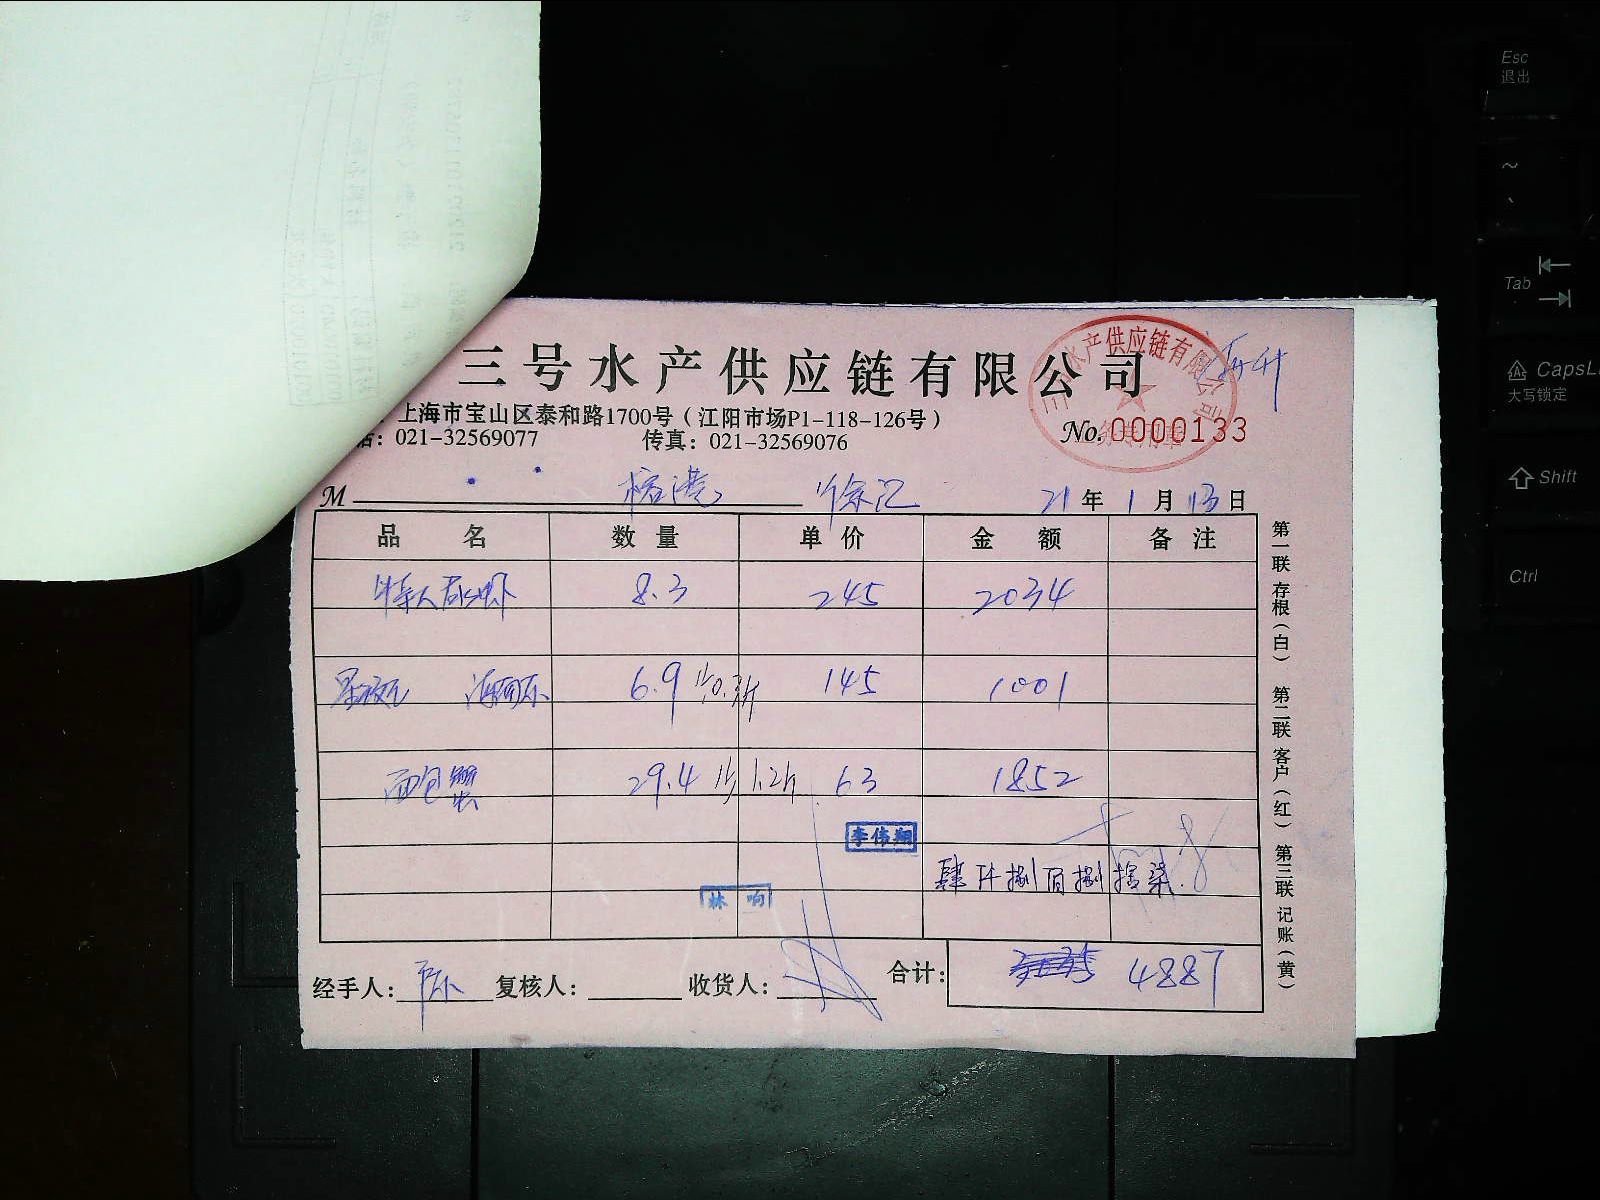 三号水产供应链有限公司
水产供应链有限公司
上海市宝山区泰和路1700号（江阳市场P1-118-126号）
话：021-32569077 传真：021-32569076
No.0000133
M 榕港 徐汇 21年1月13日
品名 数量 单价 金额 备注
8.3 245 2034
6.9 145 1001
面包蟹 29.4 63 1852
李伟翔
肆仟捌百捌拾柒
林响
经手人： 复核人： 收货人： 合计： 4887
第一联 存根（白） 第二联 客户（红） 第三联 记账（黄）
Esc
退出
~
Tab
CapsL
大写锁定
Shift
Ctrl